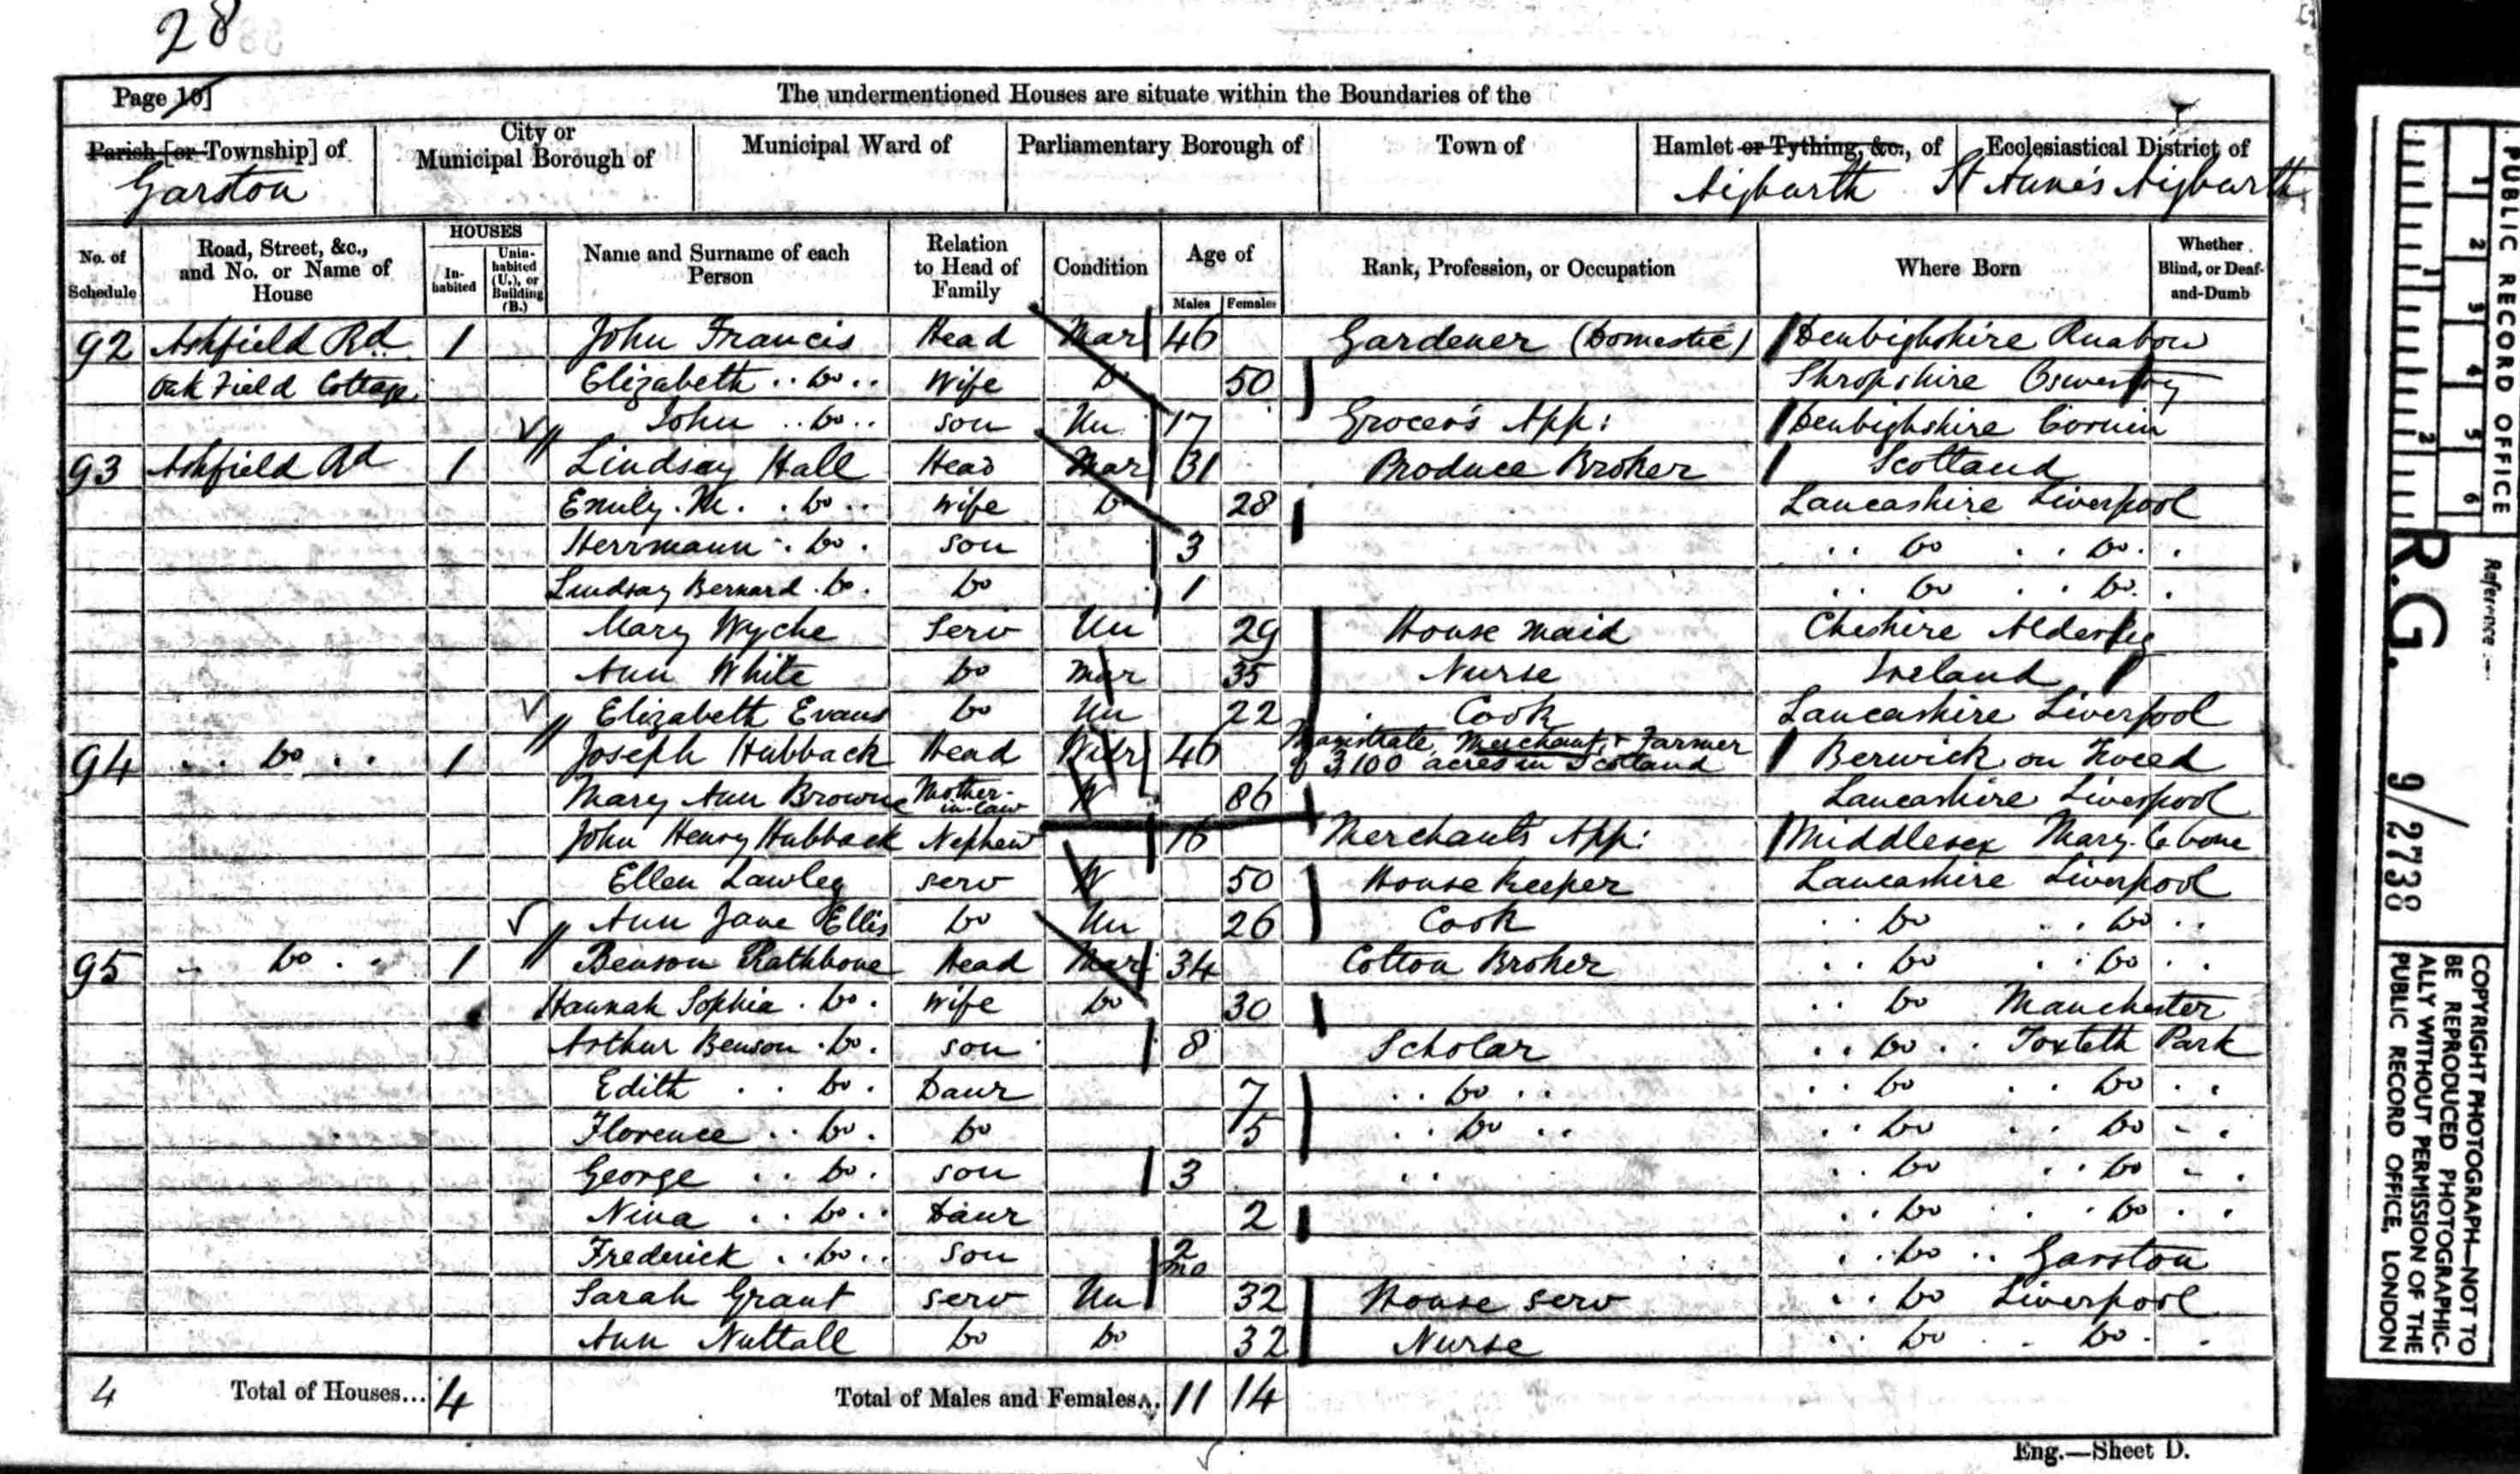 28
Page 10]
The undermentioned Houses are situate within the Boundaries of the
Parish [or Township] of
Garston
City or
Municipal Borough of
Municipal Ward of
Parliamentary Borough of
Town of
Hamlet or Tything, &c., of
Aigburth
Ecclesiastical District of
St Anne's Aigburth
No. of
Schedule
Road, Street, &c.,
and No. or Name of
House
HOUSES
In-
habited
Unin-
habited
(U.), or
Building
(B.)
Name and Surname of each
Person
Relation
to Head of
Family
Condition
Age of
Males Females
Rank, Profession, or Occupation
Where Born
Whether
Blind, or Deaf-
and-Dumb
92 Ashfield Rd 1 John Francis Head Mar 46 Gardener (Domestic) Denbighshire Ruabon
Oak Field Cottage Elizabeth .. Do .. Wife Do 50 Shropshire Oswestry
John .. Do .. son Un 17 Grocer's App: Denbighshire
93 Ashfield Rd 1 Lindsay Hall Head Mar 31 Produce Broker Scotland
Emily. M. . Do .. Wife Do 28 Lancashire Liverpool
Herrmann . Do . son 3 .. Do . . Do . .
Lindsay Bernard . Do . Do 1 .. Do . . Do . .
Mary Wyche Serv Un 29 House maid Cheshire Alderley
Ann White Do Mar 35 Nurse Ireland
Elizabeth Evans Do Un 22 Cook Lancashire Liverpool
94 .. Do .. 1 Joseph Hubback Head Widr 46 Magistrate, Merchant, + Farmer
of 3100 acres in Scotland Berwick on Tweed
Mary Ann Browne Mother-
in-law W 86 Lancashire Liverpool
John Henry Hubback Nephew 16 Merchants App: Middlesex Mary-le bone
Ellen Lawley serv W 50 House Keeper Lancashire Liverpool
Ann Jane Ellis Do Un 26 Cook .. Do .. Do ..
95 - Do . - 1 Benson Rathbone Head Mar 34 Cotton Broker .. Do .. Do ..
Hannah Sophia . Do . Wife Do 30 .. Do Manchester
Arthur Benson . Do . son 8 Scholar .. Do .. Toxteth Park
Edith . . Do . Daur 7 .. Do .. . . Do . . Do . .
Florence .. Do . Do 5 .. Do .. .. Do . . Do - .
George .. Do . son 3 .. .. Do .. Do - .
Nina . . Do .. Daur 2 . . Do . . Do . .
Frederick . . Do .. son 2
mo . . Do .. Garston
Sarah Grant serv Un 32 House serv . . Do Liverpool
Ann Nuttall Do Do 32 Nurse .. Do . . Do . .
4 Total of Houses... 4 Total of Males and Females... 11 14
Eng.—Sheet D.
PUBLIC RECORD OFFICE
1 2 3 4 5 6
1 2
Reference :—
R.G. 9/2738
COPYRIGHT PHOTOGRAPH—NOT TO
BE REPRODUCED PHOTOGRAPHIC-
ALLY WITHOUT PERMISSION OF THE
PUBLIC RECORD OFFICE, LONDON